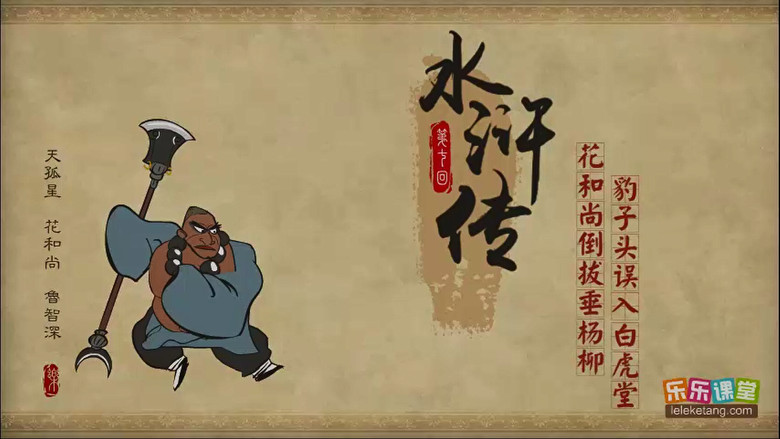 水浒传
第七回
花和尚倒拔垂杨柳
豹子头误入白虎堂
天孤星 花和尚 魯智深
乐乐课堂
leleketang.com